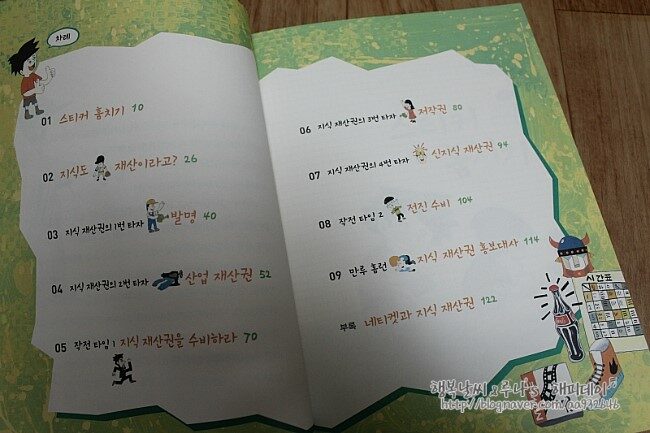 차례
01 스티커 훔치기 10
02 지식도 재산이라고? 26
03 지식 재산권의 1번 타자 발명 40
04 지식 재산권의 2번 타자 산업 재산권 52
05 작전 타임 1 지식 재산권을 수비하라 70
06 지식 재산권의 3번 타자 저작권 80
07 지식 재산권의 4번 타자 신지식 재산권 94
08 작전 타임 2 전진 수비 104
09 만루 홈런 지식 재산권 홍보대사 114
부록 네티켓과 지식 재산권 122
시간표
행복날씨 루나's 해피데이